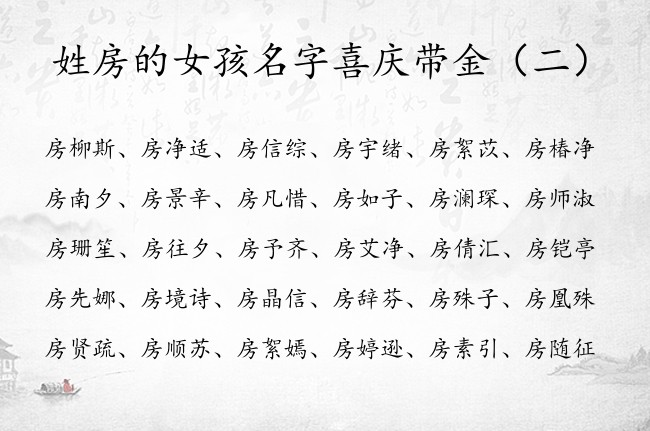 姓房的女孩名字喜庆带金（二）
房柳斯、房净适、房信综、房宇绪、房絮苡、房椿净
房南夕、房景辛、房凡惜、房如子、房澜琛、房师淑
房珊笙、房往夕、房予齐、房艾净、房倩汇、房铠亭
房先娜、房境诗、房晶信、房辞芬、房殊子、房凰殊
房贤疏、房顺苏、房絮嫣、房婷逊、房素引、房随征